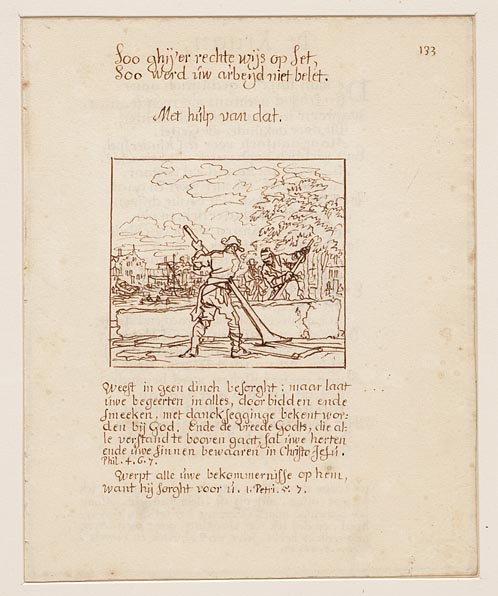 133
Soo ghij'er rechte wijs op let,
Soo werd úw arbeijd niet belet.
Met húlp van dat.
Weest in geen dinck besorght; maar laat
úwe begeerten in alles, door bidden ende
smeeken, met dancksegginge bekent wor-
den bij God. Ende de Vreede Godts, die al-
le verstand te booven gaat, sal úwe herten
ende úwe sinnen bewaaren in Christo Jesú.
Phil. 4. 6. 7.
Werpt alle úwe bekommernisse op hem,
want hij sorght voor ú. 1. Petri. 5. 7.